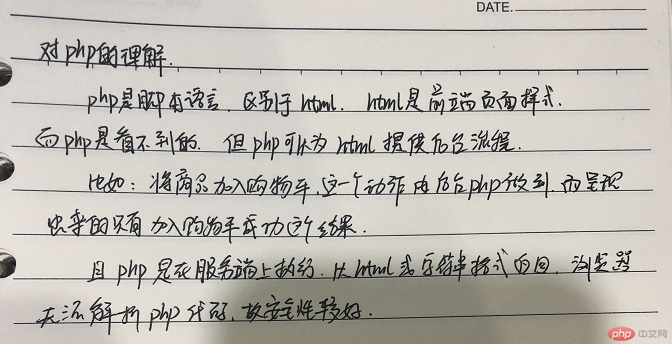 DATE.
对php的理解.
php是脚本语言, 区别于html. html是前端页面样式.
而php是看不到的. 但php可以为html提供后台流程.
比如: 将商品加入购物车, 这一个动作由后台php做到, 而呈现
出来的只有加入购物车成功这个结果.
且php是在服务端上执行, 以html或字符串格式返回, 浏览器
无法解析php代码, 故安全性较好.
php 中文网